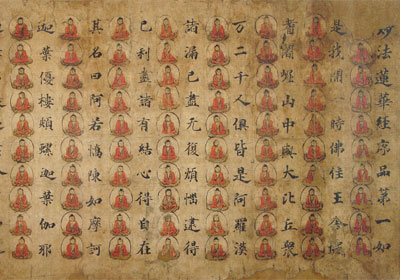 妙法蓮華經序品第一如
是我聞一時佛住王舍城
耆闍崛山中與大比丘衆
万二千人俱皆是阿羅漢
諸漏已盡无復煩惱逮得
己利盡諸有結心得自在
其名曰阿若憍陳如摩訶
迦葉優樓頻螺迦葉伽耶